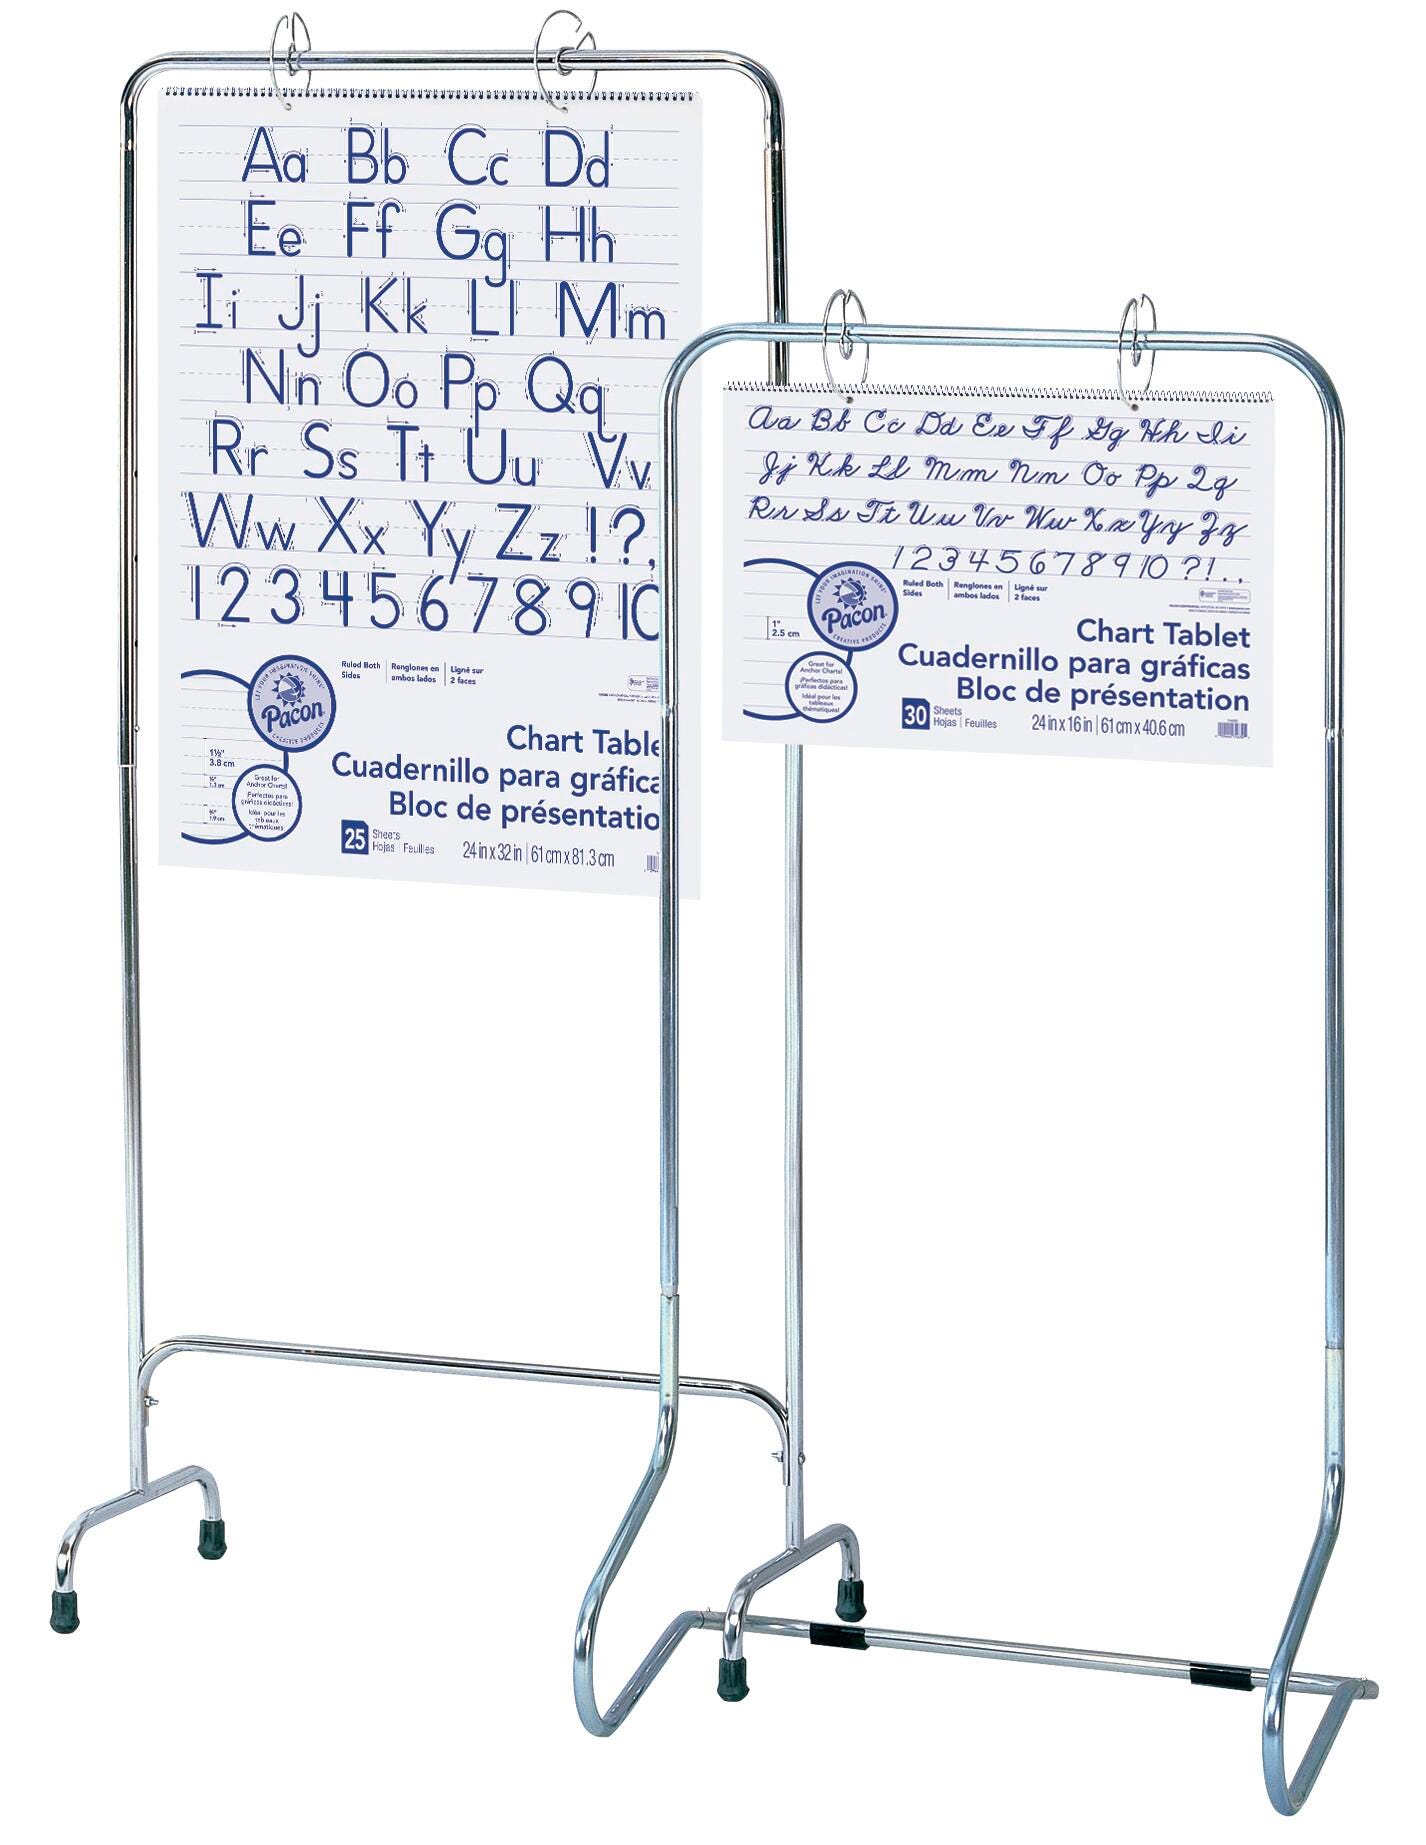 Aa Bb Cc Dd
Ee Ff Gg Hh
Ii Jj Kk Ll Mm
Nn Oo Pp Qq
Rr Ss Tt Uu Vv
Ww Xx Yy Zz !?,
1 2 3 4 5 6 7 8 9 10
LET YOUR IMAGINATION SHINE
Pacon
CREATIVE PRODUCTS
Ruled Both Sides
Renglones en ambos lados
Ligné sur 2 faces
1½"
3.8 cm
Great for Anchor Charts!
¡Perfectos para gráficas didácticas!
Idéal pour les tableaux thématiques!
Chart Table
Cuadernillo para gráfica
Bloc de présentatio
25 Sheets
Hojas | Feuilles
24 in x 32 in | 61 cm x 81.3 cm
Aa Bb Cc Dd Ee Ff Gg Hh Ii
Jj Kk Ll Mm Nn Oo Pp Qq
Rr Ss Tt Uu Vv Ww Xx Yy Zz
1 2 3 4 5 6 7 8 9 10 ?!.,
LET YOUR IMAGINATION SHINE
Pacon
CREATIVE PRODUCTS
Ruled Both Sides
Renglones en ambos lados
Ligné sur 2 faces
1"
2.5 cm
Great for Anchor Charts!
¡Perfectos para gráficas didácticas!
Idéal pour les tableaux thématiques!
Chart Tablet
Cuadernillo para gráficas
Bloc de présentation
30 Sheets
Hojas | Feuilles
24 in x 16 in | 61 cm x 40.6 cm